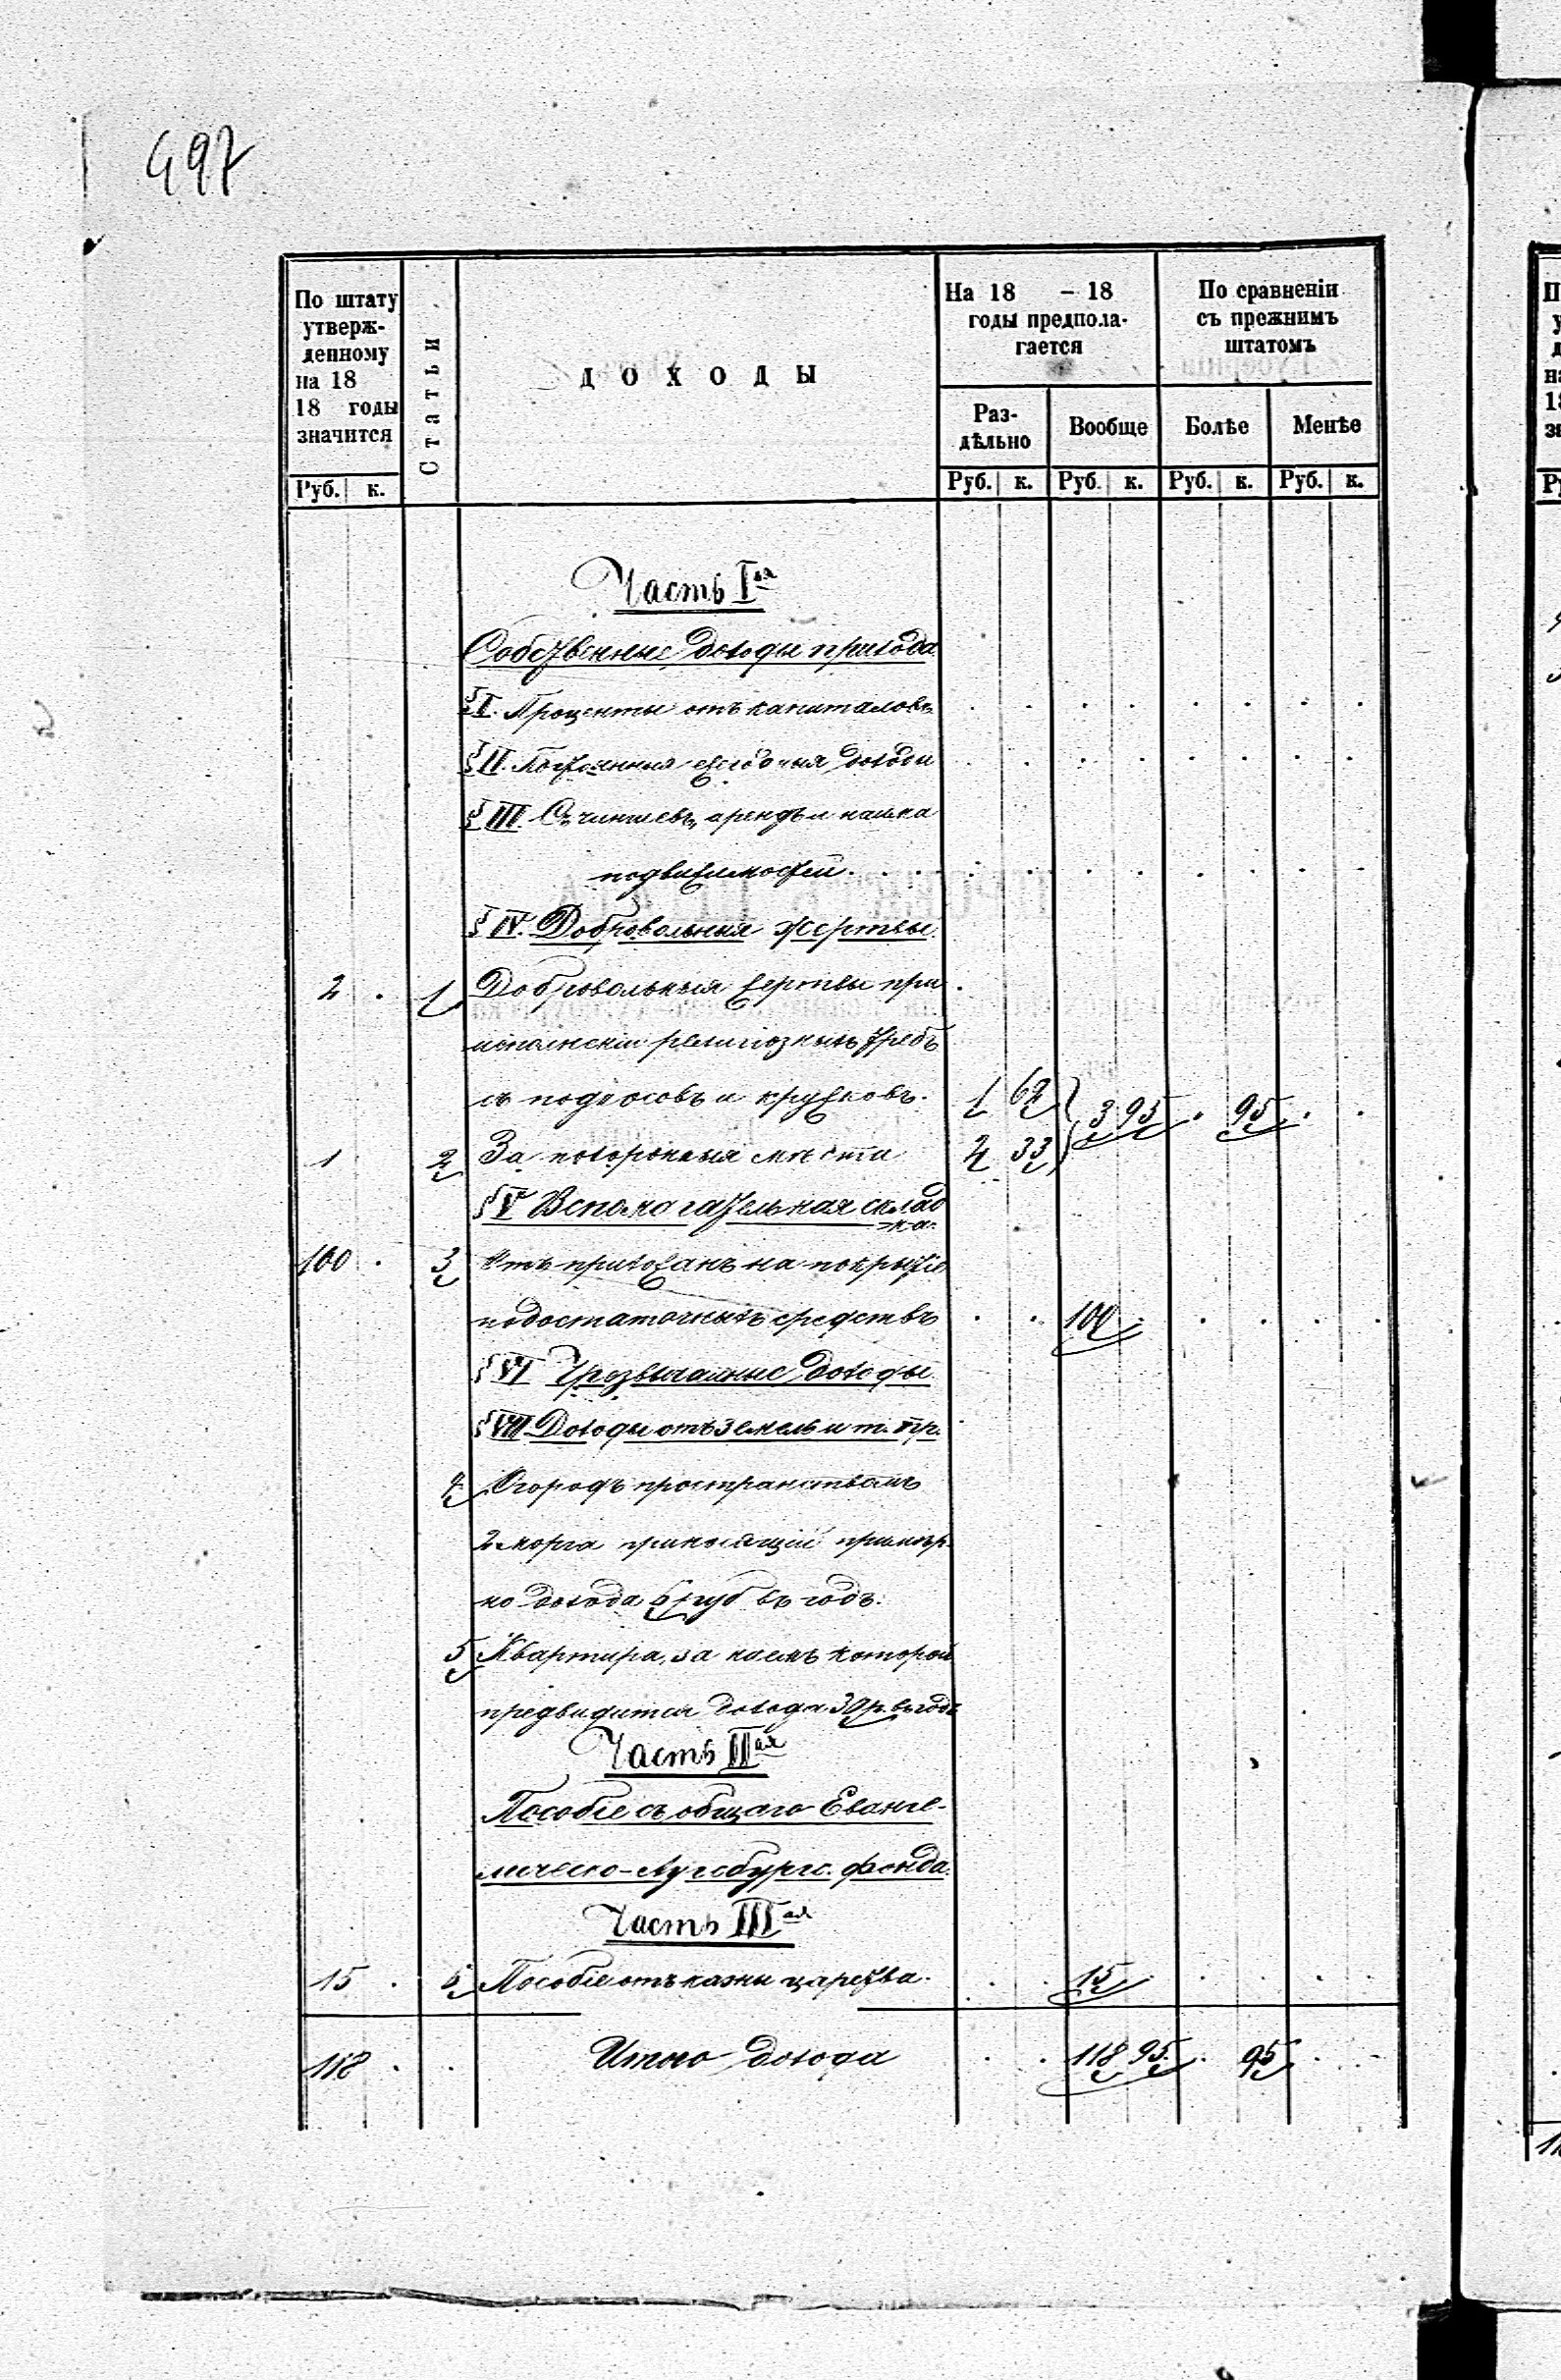 497
По штату утверж-
денному
на 18
18 годы
значится
Руб. к.
Статьи
ДОХОДЫ
На 18 – 18
годы предпола-
гается
Раз-
дѣльно
Руб. к.
Вообще
Руб. к.
По сравненіи
съ прежнимъ
штатомъ
Болѣе
Руб. к.
Менѣе
Руб. к.
Часть Iая
Собственные доходы прихода
§ I. Проценты отъ капиталовъ
§ II. Постоянныя ежегодныя доходы
§ III Съ чиншевъ, арендъ и найма
недвижимостей
§ IV. Добровольныя жертвы
2 . 1 Добровольныя жертвы при
исполненіи религіозныхъ требъ
съ подносовъ и кружковъ. 1 62 } 3 95 . 95 . .
1 2 За похоронныя мѣста 2 33
§ V Вспомогательная склад
-ка.
100 . 3 Отъ прихожанъ на покрытіе
недостаточныхъ средствъ . . 100 . . . . .
§ VI Чрезвычайные доходы
§ VII Доходы отъ земель и т. пр.
4 Огородъ пространствомъ
2 морга приносящій примѣр-
но дохода 6 руб въ годъ.
5 Квартира, за наемъ которой
предвидится дохода 30 р. въ годъ
Часть IIая
Пособіе съ общаго Еванге-
лическо-Аугсбургс. фонда.
Часть IIIая
15 . 6 Пособіе отъ казны царства. . . 15 . . . . .
118 . . Итого дохода . . 118 95 . 95 . .